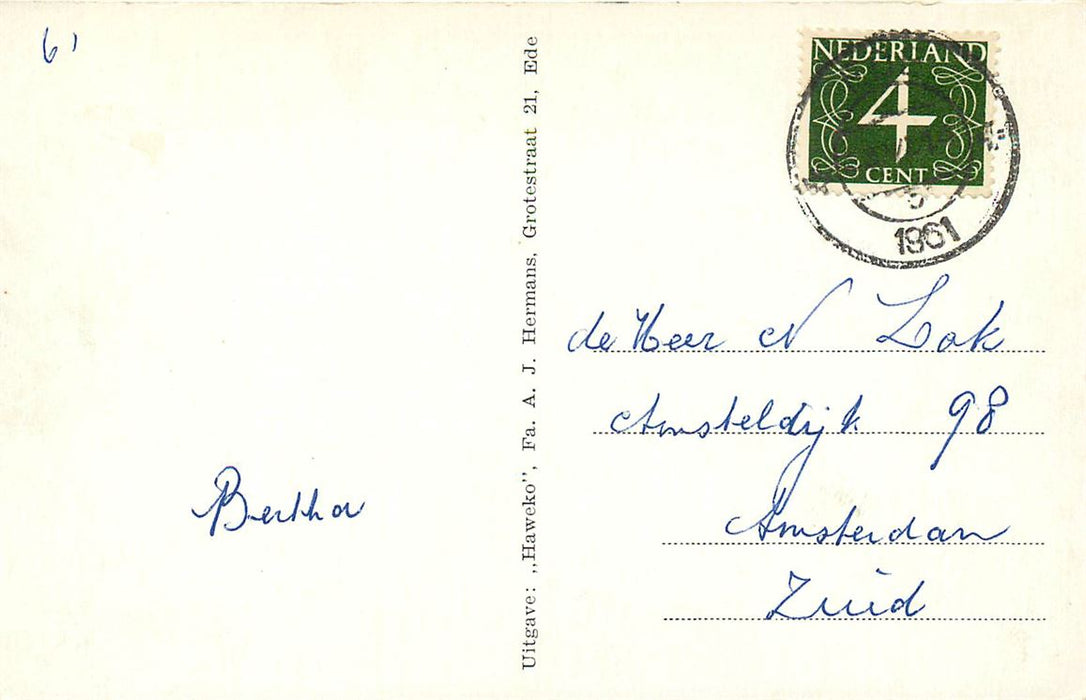 61
Bertha
Uitgave: „Haweko”, Fa. A. J. Hermans, Grotestraat 21, Ede
NEDERLAND
4
CENT
1961
de Heer N Lok
Amsteldijk 98
Amsterdam
Zuid